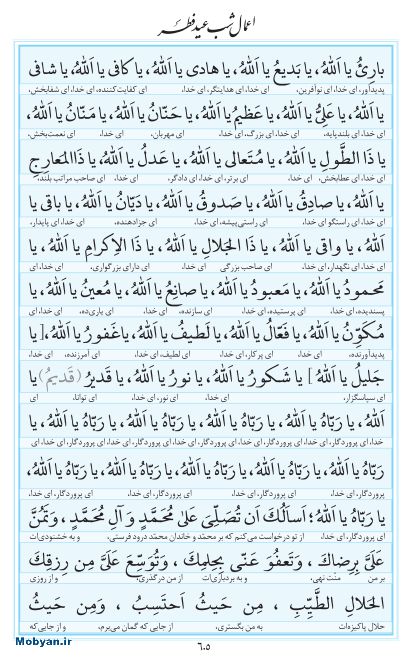 اعمال شب عید فطر
بارِئُ یا اَللهُ، یا بَدیعُ یا اَللهُ، یا هادی یا اَللهُ، یا کافی یا اَللهُ، یا شافی
پدیدآور، ای خدا، ای نوآفرین، ای خدا، ای هدایتگر، ای خدا، ای کفایت‌کننده، ای خدا، ای شفابخش،
یا اَللهُ، یا عَلِیُّ یا اَللهُ، یا عَظیمُ یا اَللهُ، یا حَنّانُ یا اَللهُ، یا مَنّانُ یا اَللهُ،
ای خدا، ای بلندپایه، ای خدا، ای بزرگ، ای خدا، ای مهربان، ای خدا، ای نعمت‌بخش،
یا ذَا الطَّولِ یا اَللهُ، یا مُتَعالی یا اَللهُ، یا عَدلُ یا اَللهُ، یا ذَا المَعارِجِ
ای خدا، ای عطابخش، ای خدا، ای برتر، ای خدا، ای دادگر، ای خدا، ای صاحب مراتب بلند،
یا اَللهُ، یا صادِقُ یا اَللهُ، یا صَدوقُ یا اَللهُ، یا دَیّانُ یا اَللهُ، یا باقی یا
ای خدا، ای راستگو ای خدا، ای راستی‌پیشه، ای خدا، ای جزادهنده، ای خدا، ای پایدار،
اَللهُ، یا واقی یا اَللهُ، یا ذَا الجَلالِ یا اَللهُ، یا ذَا الاِکرامِ یا اَللهُ، یا
ای خدا، ای نگهدار، ای خدا، ای صاحب بزرگی ای خدا، ای دارای بزرگواری، ای خدا، ای
مَحمودُ یا اَللهُ، یا مَعبودُ یا اَللهُ، یا صانِعُ یا اَللهُ، یا مُعینُ یا اَللهُ، یا
پسندیده، ای خدا، ای پرستیده، ای خدا، ای سازنده، ای خدا، ای یاری‌ده، ای خدا، ای
مُکَوِّنُ یا اَللهُ، یا فَعّالُ یا اَللهُ، یا لَطیفُ یا اَللهُ، یاغَفورُ یا اَللهُ،[ یا
پدیدآورنده، ای خدا، ای پرکار، ای خدا، ای لطیف، ای خدا، ای آمرزنده، ای خدا، ای
جَلیلُ یا اَللهُ ] یا شَکورُ یا اَللهُ، یا نورُ یا اَللهُ، یا قَدیرُ (قَدیمُ) یا
ای سپاسگزار، ای خدا، ای نور، ای خدا، ای توانا، ای
اَللهُ، یا رَبّاهُ یا اَللهُ، یا رَبّاهُ یا اَللهُ، یا رَبّاهُ یا اَللهُ، یا
خدا، ای پروردگار، ای خدا، ای پروردگار، ای خدا، ای پروردگار، ای خدا، ای
رَبّاهُ یا اَللهُ، یا رَبّاهُ یا اَللهُ، یا رَبّاهُ یا اَللهُ، یا رَبّاهُ یا اَللهُ،
پروردگار، ای خدا، ای پروردگار، ای خدا، ای پروردگار، ای خدا، ای پروردگار، ای خدا،
یا رَبّاهُ یا اَللهُ؛ اَسأَلُكَ اَن تُصَلِّیَ عَلىٰ مُحَمَّدٍ وَ آلِ مُحَمَّدٍ، وَ تَمُنَّ
ای پروردگار، ای خدا، از تو درخواست می‌کنم که بر محمّد و خاندان محمّد درود فرستی، و به خشنودی‌ات
عَلَیَّ بِرِضاكَ، وَ تَعفُوَ عَنّی بِحِلمِكَ، وَ تُوَسِّعَ عَلَیَّ مِن رِزقِكَ
بر من منت نهی، و به بردباری‌ات از من درگذری، و از روزی
الحَلالِ الطَّیِّبِ ، مِن حَیثُ اَحتَسِبُ ، وَ مِن حَیثُ
حلال پاکیزه‌ات به من بگستری، از جایی که گمان می‌برم، و از جایی‌که
۶۰۵
Mobyan.ir